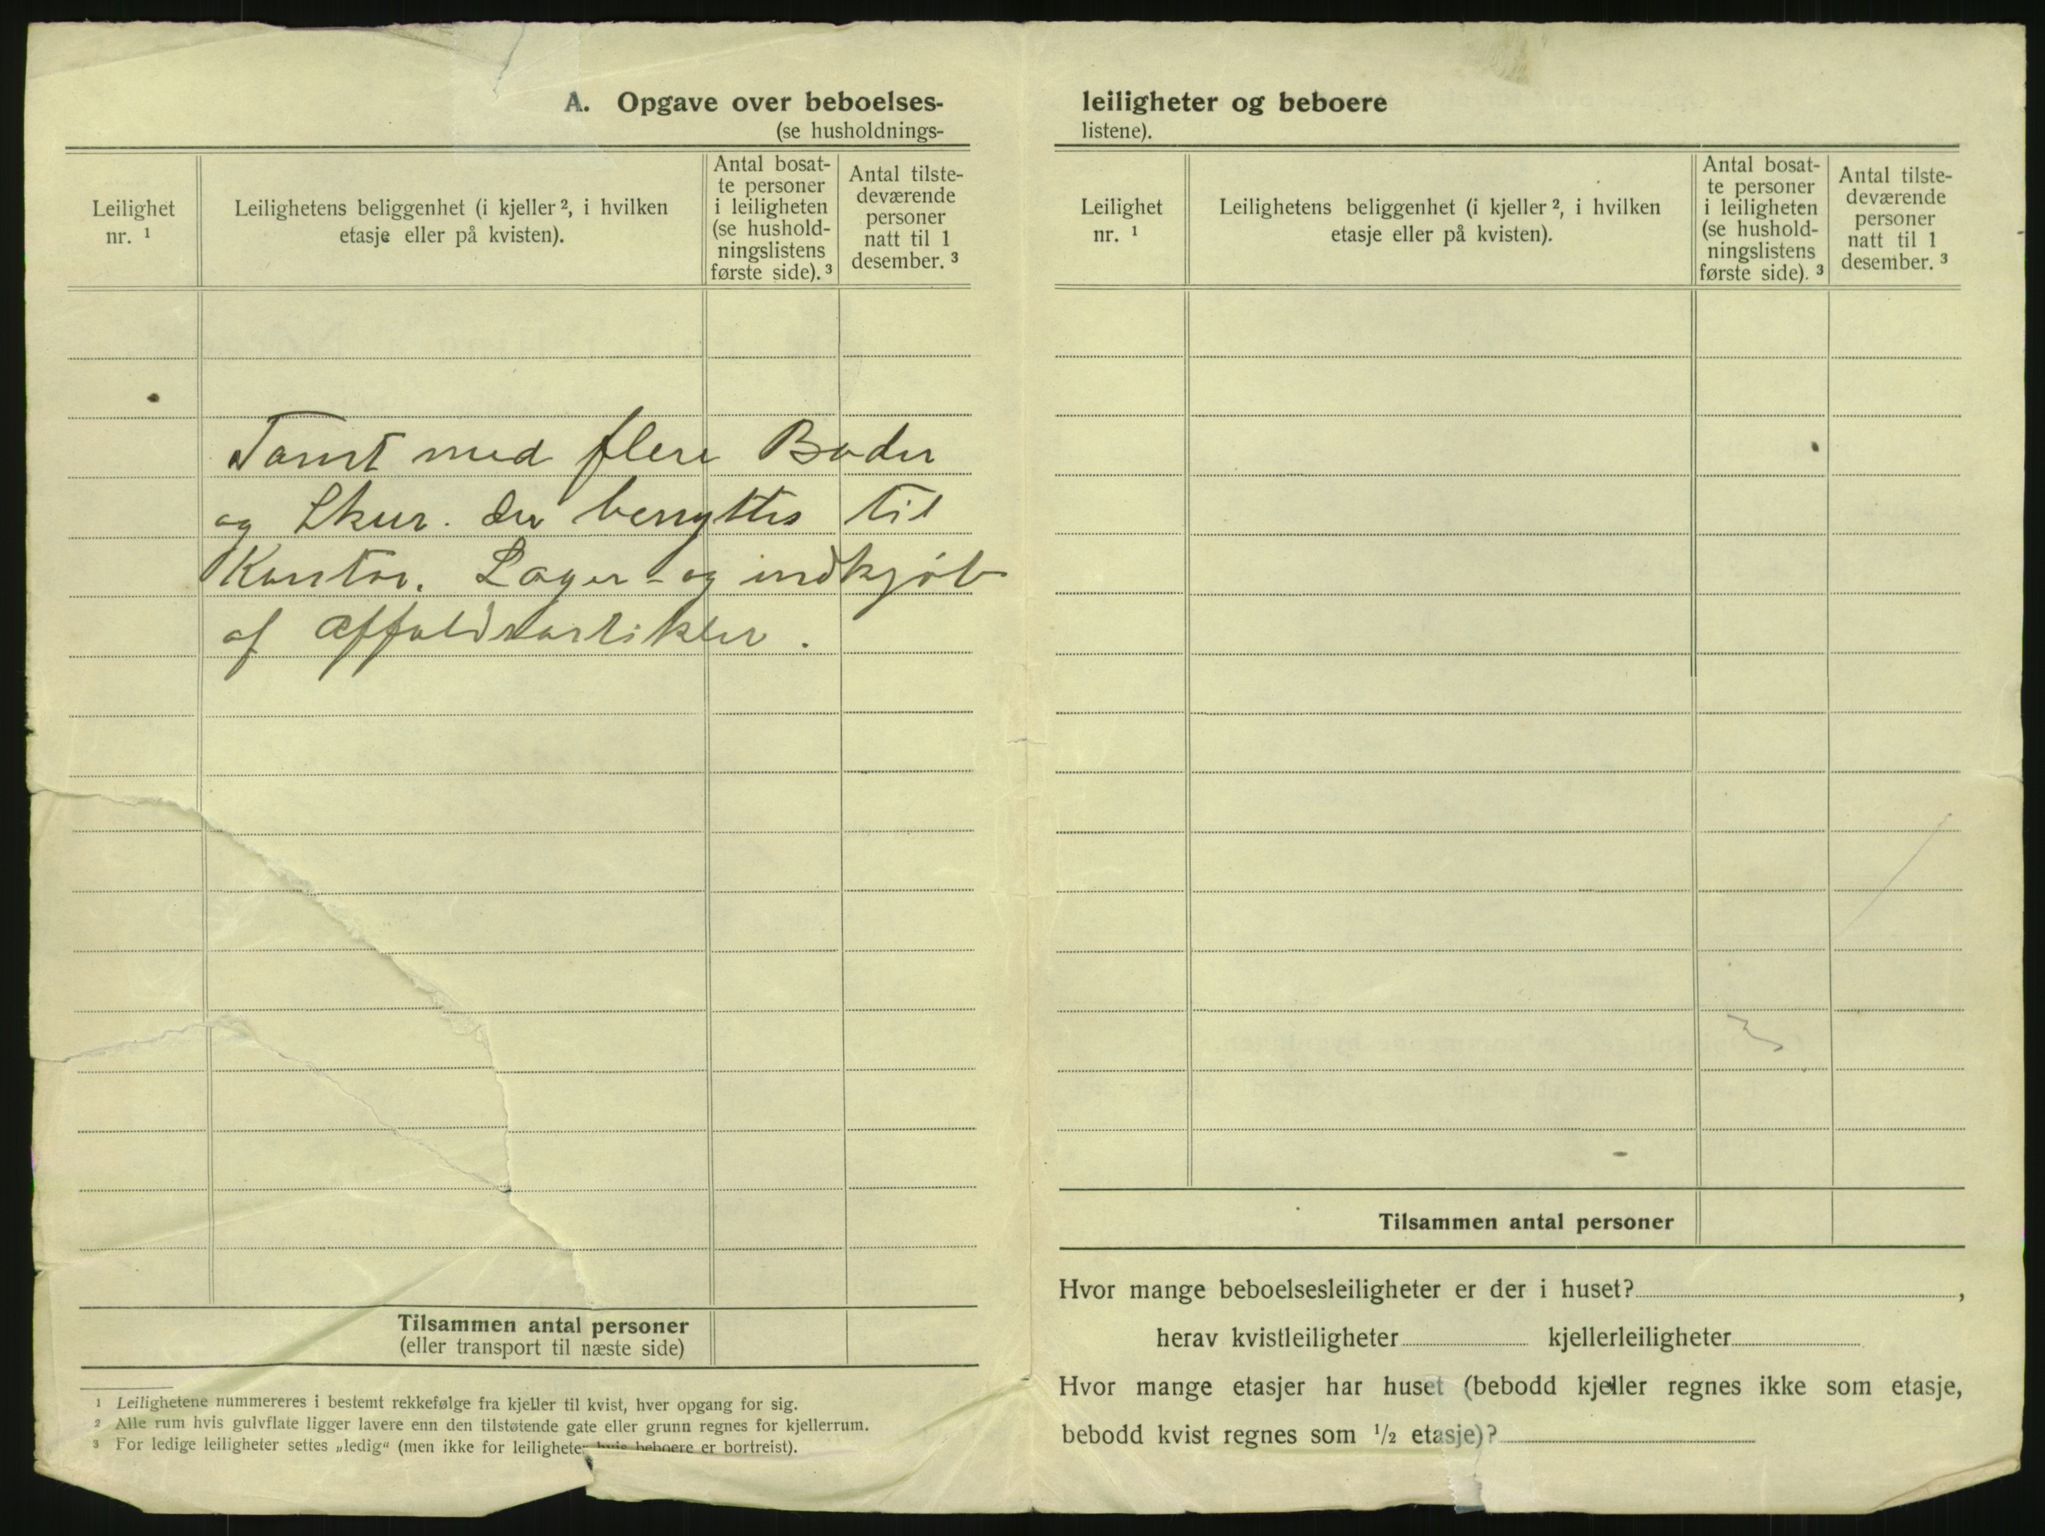 A. Opgave over beboelses-
(se husholdnings-
Leilighet
nr. ¹
Leilighetens beliggenhet (i kjeller ², i hvilken
etasje eller på kvisten).
Antal bosat-
te personer
i leiligheten
(se hushold-
ningslistens
første side). ³
Antal tilste-
deværende
personer
natt til 1
desember. ³
Tomt med flere Boder
og Skur. der benyttes til
Kontor. Lager- og indkjøb
af Affaldsartikler.
Tilsammen antal personer
(eller transport til næste side)
¹ Leilighetene nummereres i bestemt rekkefølge fra kjeller til kvist, hver opgang for sig.
² Alle rum hvis gulvflate ligger lavere enn den tilstøtende gate eller grunn regnes for kjellerrum.
³ For ledige leiligheter settes „ledig“ (men ikke for leiligheter hvis beboere er bortreist).
leiligheter og beboere
listene).
Leilighet
nr. ¹
Leilighetens beliggenhet (i kjeller ², i hvilken
etasje eller på kvisten).
Antal bosat-
te personer
i leiligheten
(se hushold-
ningslistens
første side). ³
Antal tilste-
deværende
personer
natt til 1
desember. ³
Tilsammen antal personer
Hvor mange beboelsesleiligheter er der i huset? ,
herav kvistleiligheter kjellerleiligheter
Hvor mange etasjer har huset (bebodd kjeller regnes ikke som etasje,
bebodd kvist regnes som ½ etasje)?